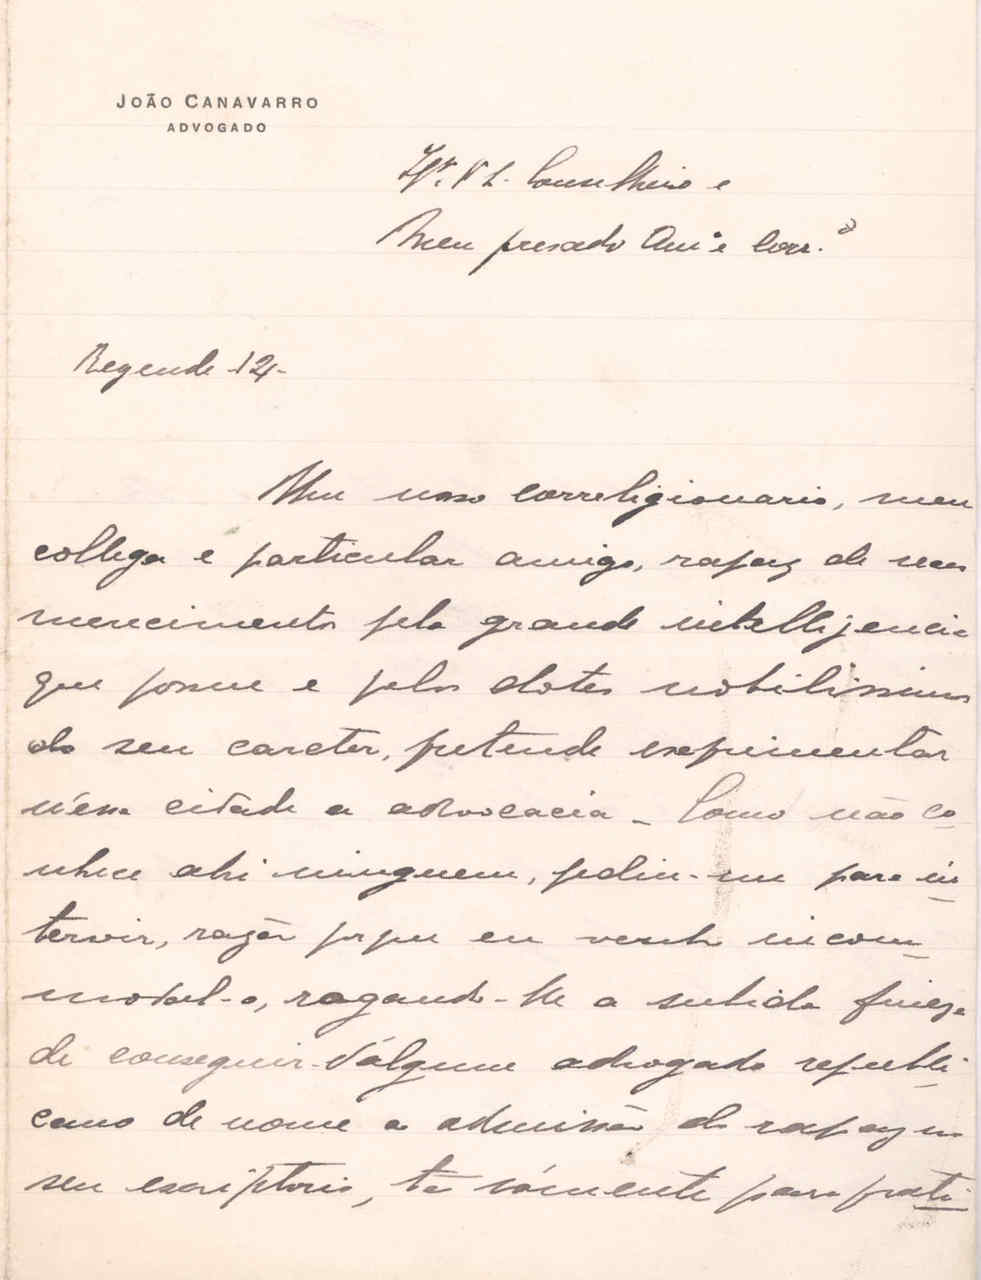 JOÃO CANAVARRO
ADVOGADO
Conselheiro e
Meu presado Amº e Corr.º
Rezende -12-
Um nosso correligionario, meu
collega e particular amigo, rapaz de
merecimento pela grande intelligencia
que possue e pelos dotes nobilissimos
do seu caracter, pretende experimentar
n'essa cidade a advocacia - Como não co-
nhece ahi ninguem, pediu-me para in-
tervir, razão porque eu venho incom-
modal-o, rogando-lhe a subida fineza
de conseguir d'algum advogado republi-
cano de nome a admissão do rapaz no
seu escriptorio, tão sómente para prati-